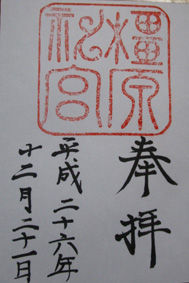 橿原
神宮
奉拝
平成二十六年
十二月二十一日